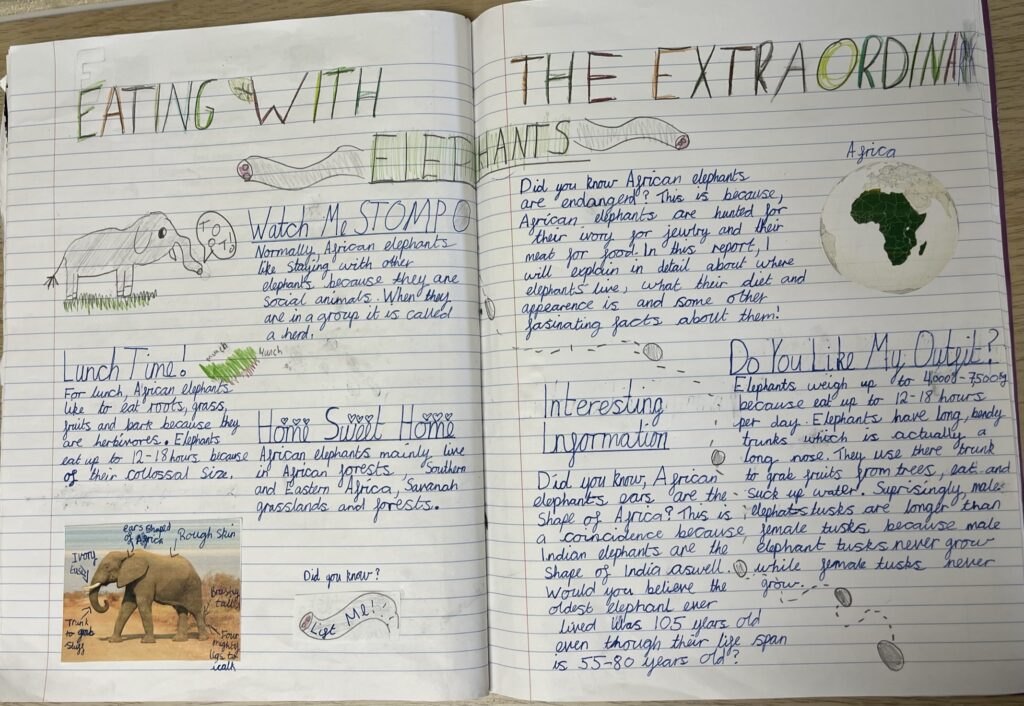 EATING WITH THE EXTRAORDINARY
ELEPHANTS
TOOT
Watch Me STOMP
Normally African elephants
like staying with other
elephants because they are
social animals. When they
are in a group it is called
a herd.
Lunch Time!
munch
Munch
For lunch, African elephants
like to eat roots, grass,
fruits and bark because they
are herbivores. Elephants
eat up to 12-18 hours bicause
of their collossal size.
Home Sweet Home
African elephants mainly live
in African forests, Southern
and Eastern Africa, Savanah
grasslands and forests.
ears shaped
of Africa
Rough Skin
Ivory
tusks
Trunk
to grab
Four
mighty
legs to
walk
Did you know?
Lift Me!
Did you know African elephants
are endangerd? This is because,
African elephants are hunted for
their ivory for jewlry and their
meat for food. In this report, I
will explain in detail about where
elephants live, what their diet and
appearence is and some other
fasinating facts about them!
Africa
Interesting
Information
Did you know, African
elephants ears are the
shape of Africa? This is
a coincidence because,
Indian elephants are the
shape of India aswell.
Would you believe the
oldest elephant ever
lived was 105 years old
even though their life span
is 55-80 years old?
Do You Like My Outfit?
Elephants weigh up to
because eat up to 12-18 hours
per day. Elephants have long, bendy
trunks which is actually a
long nose. They use there trunk
to grab fruits from trees, eat and
suck up water. Suprisingly, male
elephats tusks are longer than
female tusks because male
elephant tusks never grow
while female tusks never
grow.